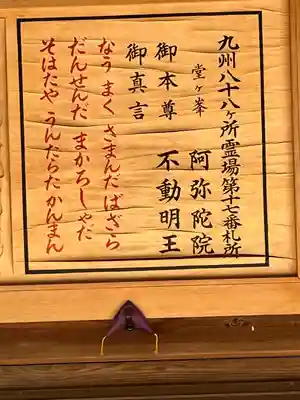 九州八十八ヶ所霊場第十七番札所
堂ヶ峯 阿弥陀院
御本尊 不動明王
御真言
なうまくさまんだばざら
だんせんだまかろしゃだ
そはたやうんたらたかんまん